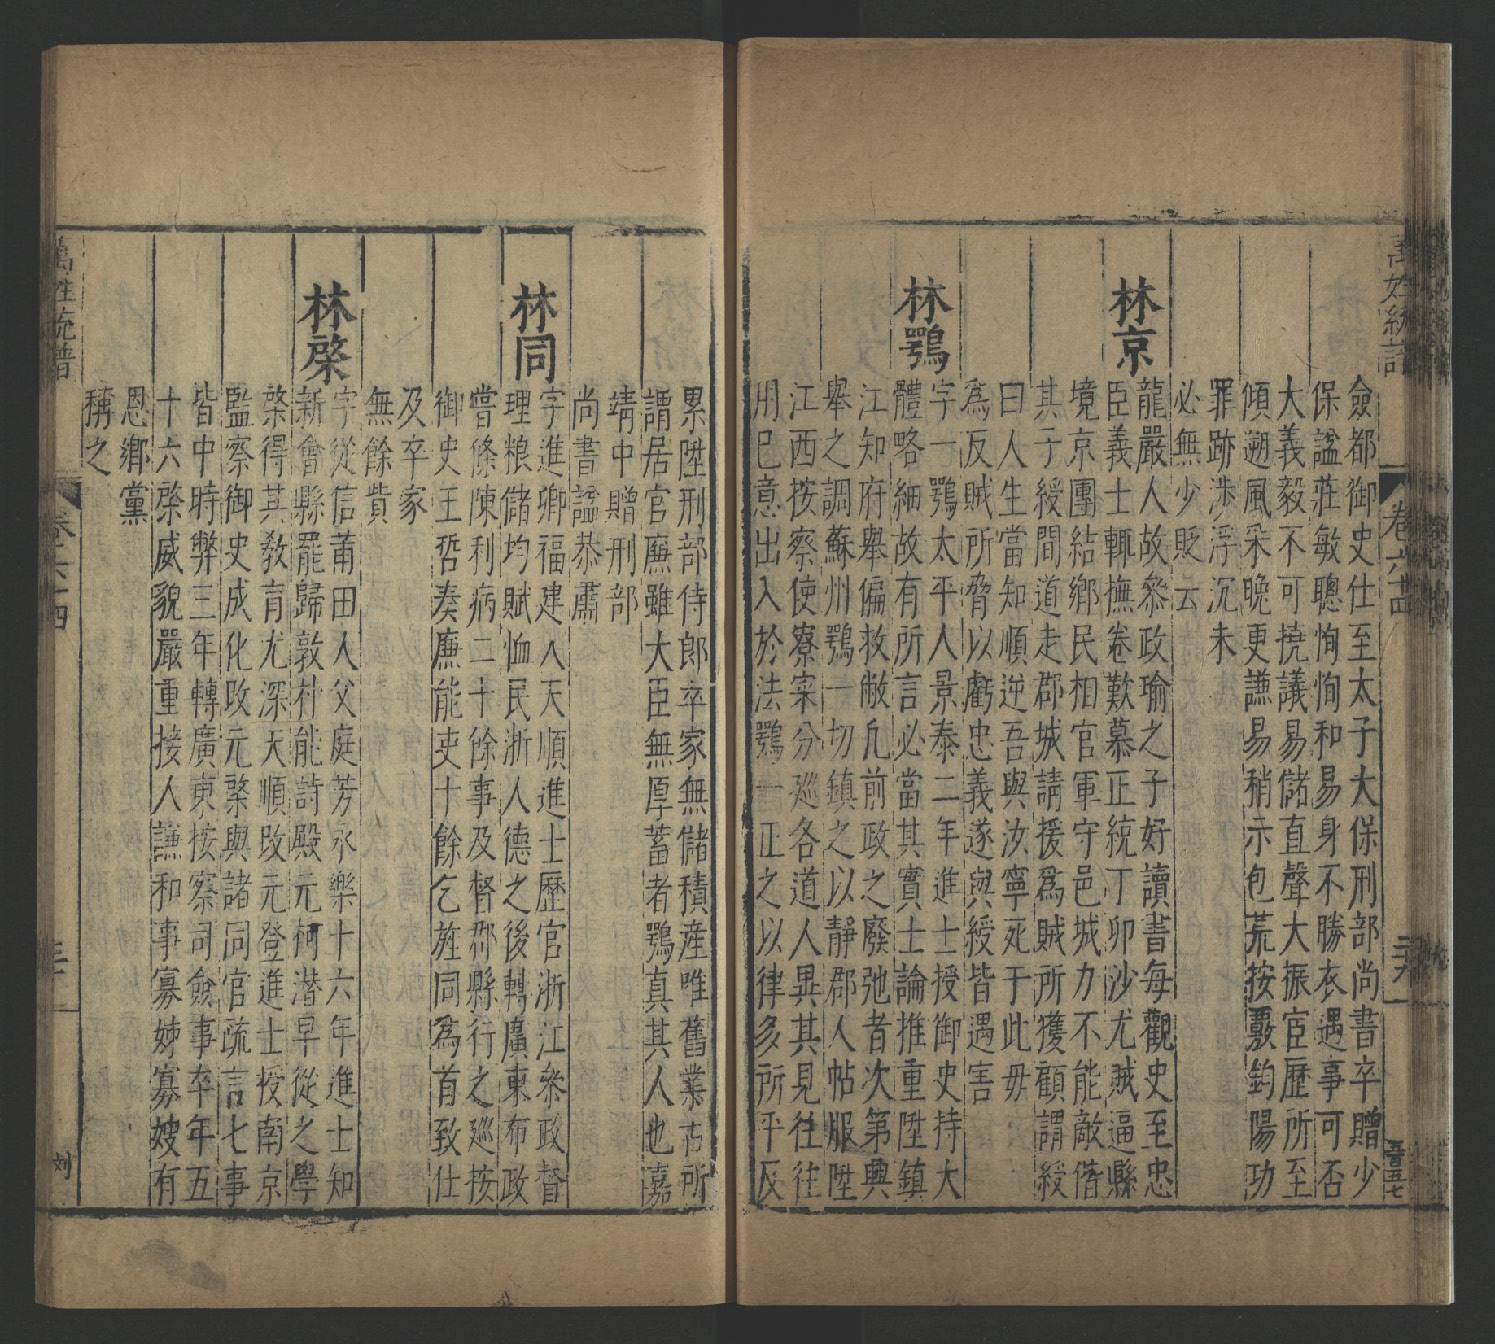 萬姓統譜
卷六十四
僉都御史仕至太子大保刑部尚書卒贈少
保諡莊敏聰恂恂和易身不勝衣遇事可否
大義毅不可撓議易儲直聲大振宦歷所至
傾遡風采晚更謙易稍示包荒按覈鈞陽功
罪跡涉浮沉未
必無少貶云
林京
龍巖人故叅政瑜之子好讀書每觀史至忠
臣義士輒撫卷歎慕正統丁卯沙尤賊逼縣
境京團結鄉民相官軍守邑城力不能敵偕
其子綬間道走郡城請援爲賊所獲顧謂綬
曰人生當知順逆吾與汝寧死于此毋
爲反賊所脅以虧忠義遂與綬皆遇害
林鶚
字一鶚太平人景泰二年進士授御史持大
體略細故有所言必當其實士論推重陞鎮
江知府舉偏救敝凢前政之廢弛者次第興
舉之調蘇州鶚一切鎮之以靜郡人帖服陞
江西按察使寮寀分廵各道人異其見徃徃
用巳意出入於法鶚一正之以律多所平反
累陞刑部侍郎卒家無儲積産唯舊業而所
謂居官廉雖大臣無厚蓄者鶚真其人也嘉
靖中贈刑部
尚書諡恭肅
林同
字進卿福建人天順進士歷官浙江叅政督
理粮儲均賦恤民浙人德之後轉廣東布政
嘗條陳利病二十餘事及督郡縣行之廵按
御史王哲奏廉能吏十餘乞旌同爲首致仕
及卒家
無餘貲
林棨
字從信莆田人父庭芳永樂十六年進士知
新會縣罷歸敦朴能詩殿元柯潛早從之學
棨得其敎育尤深天順改元登進士授南京
監察御史成化改元棨與諸同官疏言七事
皆中時弊三年轉廣東按察司僉事卒年五
十六棨威貌嚴重接人謙和事寡姊寡嫂有
恩鄉黨
稱之
萬姓統譜
卷六十四